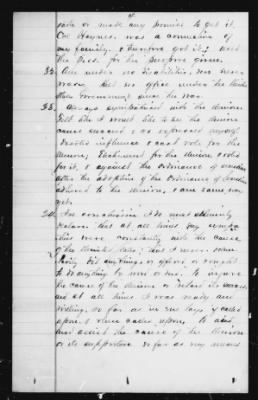 4
take or made any promise to get it.
Col Haynes was a connection of
my family & therefore got it, and
the Pass. for the purpose given.
32. Am under no disabilities,
held no office under the
State Government since the war
33. Always sympathized with the Union
Felt like I would like to see the Union
cause succeed & so expressed myself.
Exerted influence & cast vote for the
Union, Electioned for the Union & voted
for it, & against the Ordinance of secession
after the adoption of the Ordinance of Secession
adhered to the Union, & am same now
yet.
34. In conclusion I do most solemnly
declare that at all times my sympa
thies were constantly with the cause
of the United States, that I never volun
tarily did anything, or offered or sought
to do anything by word or deed to injure
the cause of the Union or retard its success
and at all times I was ready and
willing, so far as in me lays if called
upon, & when called upon, to aid
and assist the cause of the Union
or its supporters so far as my means